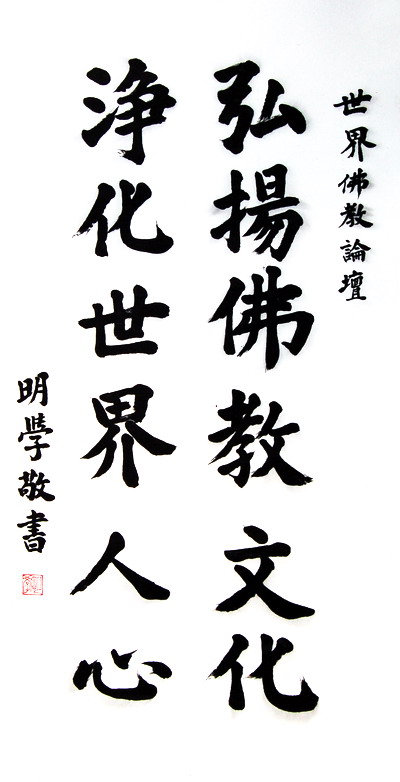 世界佛教論壇
弘揚佛教文化
净化世界人心
明學敬書